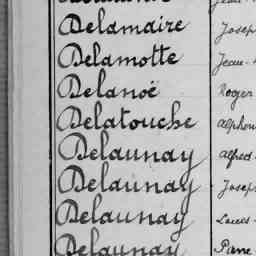 Delamaire Josep
Delamotte Jean-
Delanoë Roger
Delatouche Alphon
Delaunay Alfred-
Delaunay Josep
Delaunay Louis-
Delaunay Pierre